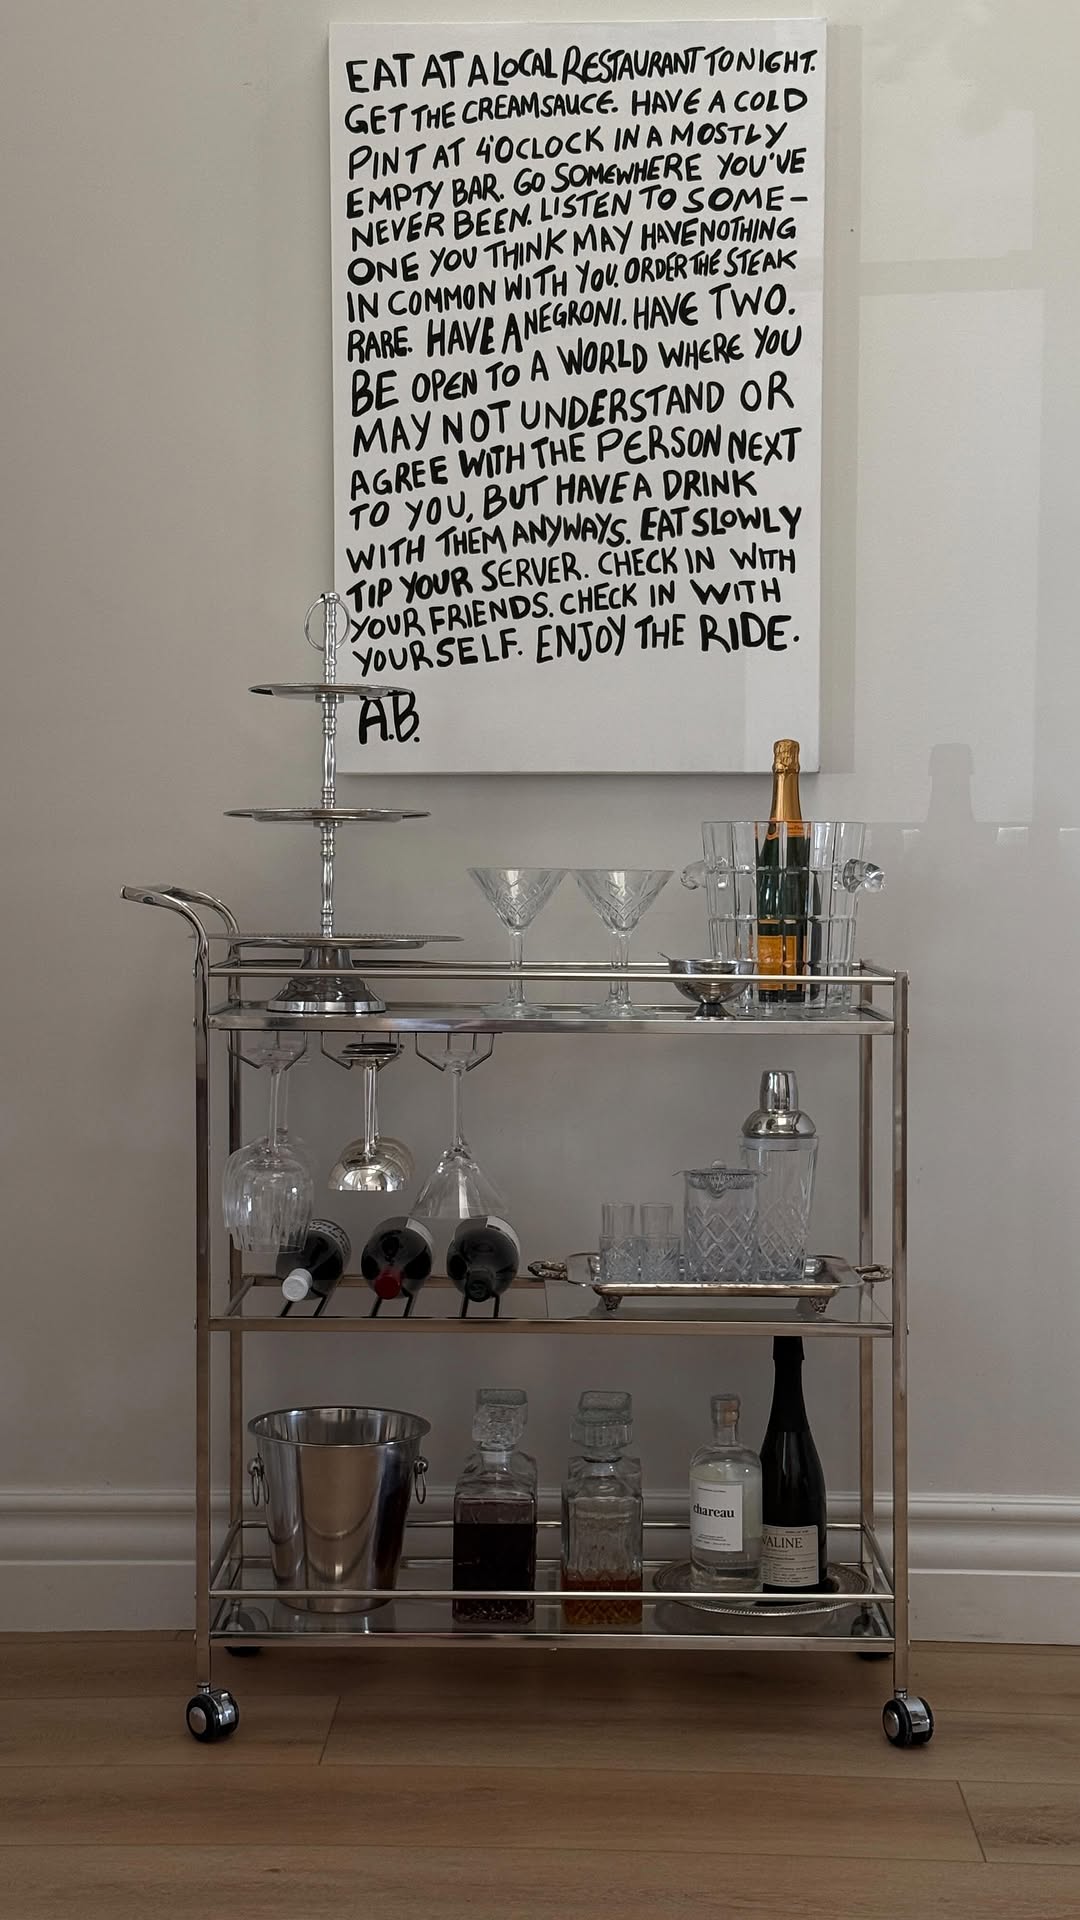 EAT AT A LOCAL RESTAURANT TONIGHT.
GET THE CREAM SAUCE. HAVE A COLD
PINT AT 4'OCLOCK IN A MOSTLY
EMPTY BAR. GO SOMEWHERE YOU'VE
NEVER BEEN. LISTEN TO SOME-
ONE YOU THINK MAY HAVE NOTHING
IN COMMON WITH YOU. ORDER THE STEAK
RARE. HAVE A NEGRONI. HAVE TWO.
BE OPEN TO A WORLD WHERE YOU
MAY NOT UNDERSTAND OR
AGREE WITH THE PERSON NEXT
TO YOU, BUT HAVE A DRINK
WITH THEM ANYWAYS. EAT SLOWLY
TIP YOUR SERVER. CHECK IN WITH
YOUR FRIENDS. CHECK IN WITH
YOURSELF. ENJOY THE RIDE.
A.B.
chareau
VALINE